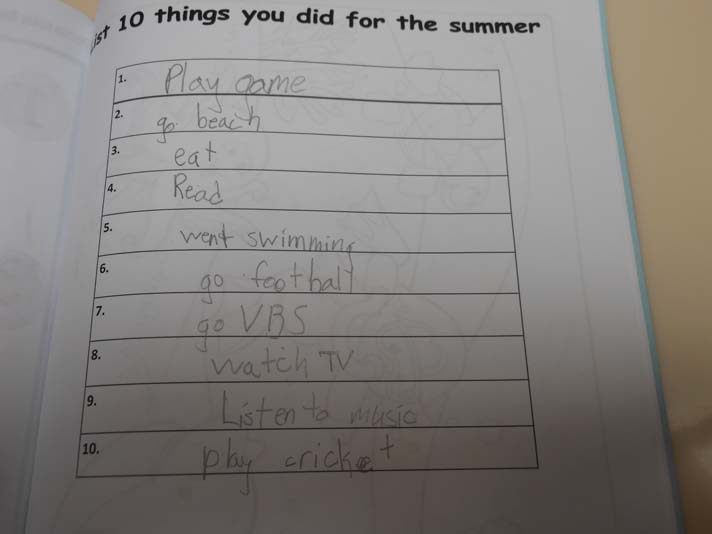 ist 10 things you did for the summer
1. Play game
2. go beach
3. eat
4. Read
5. went swimming
6. go football
7. go VBS
8. watch TV
9. Listen to music
10. play cricket